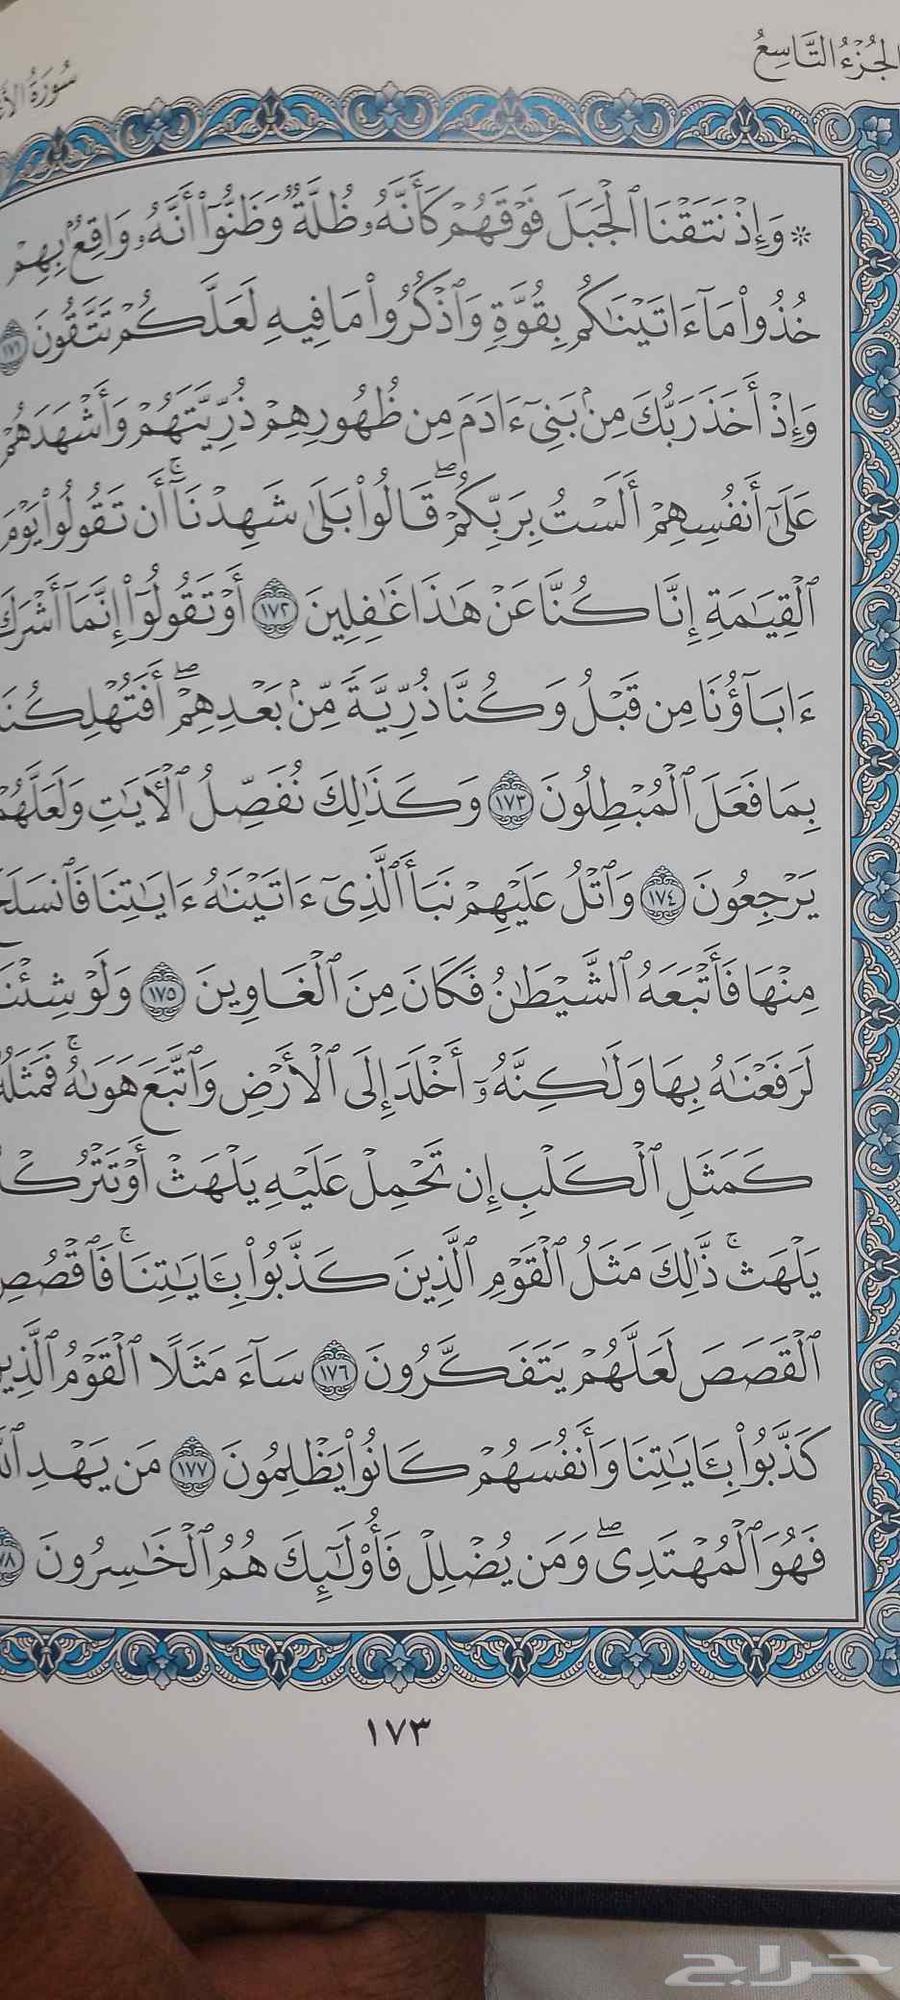 الجُزْءُ التَّاسِعُ
سُورَةُ
۞ وَإِذْ نَتَقْنَا ٱلْجَبَلَ فَوْقَهُمْ كَأَنَّهُۥ ظُلَّةٌ وَظَنُّوٓا۟ أَنَّهُۥ وَاقِعٌۢ بِهِمْ
خُذُوا۟ مَآ ءَاتَيْنَٰكُم بِقُوَّةٍ وَٱذْكُرُوا۟ مَا فِيهِ لَعَلَّكُمْ تَتَّقُونَ ١٧١
وَإِذْ أَخَذَ رَبُّكَ مِنۢ بَنِىٓ ءَادَمَ مِن ظُهُورِهِمْ ذُرِّيَّتَهُمْ وَأَشْهَدَهُمْ
عَلَىٰٓ أَنفُسِهِمْ أَلَسْتُ بِرَبِّكُمْ ۖ قَالُوا۟ بَلَىٰ شَهِدْنَآ ۚ أَن تَقُولُوا۟ يَوْمَ
ٱلْقِيَٰمَةِ إِنَّا كُنَّا عَنْ هَٰذَا غَٰفِلِينَ ١٧٢ أَوْ تَقُولُوٓا۟ إِنَّمَآ أَشْرَكَ
ءَابَآؤُنَا مِن قَبْلُ وَكُنَّا ذُرِّيَّةً مِّنۢ بَعْدِهِمْ ۖ أَفَتُهْلِكُنَا
بِمَا فَعَلَ ٱلْمُبْطِلُونَ ١٧٣ وَكَذَٰلِكَ نُفَصِّلُ ٱلْءَايَٰتِ وَلَعَلَّهُمْ
يَرْجِعُونَ ١٧٤ وَٱتْلُ عَلَيْهِمْ نَبَأَ ٱلَّذِىٓ ءَاتَيْنَٰهُ ءَايَٰتِنَا فَٱنسَلَخَ
مِنْهَا فَأَتْبَعَهُ ٱلشَّيْطَٰنُ فَكَانَ مِنَ ٱلْغَاوِينَ ١٧٥ وَلَوْ شِئْنَا
لَرَفَعْنَٰهُ بِهَا وَلَٰكِنَّهُۥٓ أَخْلَدَ إِلَى ٱلْأَرْضِ وَٱتَّبَعَ هَوَىٰهُ ۚ فَمَثَلُهُۥ
كَمَثَلِ ٱلْكَلْبِ إِن تَحْمِلْ عَلَيْهِ يَلْهَثْ أَوْ تَتْرُكْهُ
يَلْهَث ۚ ذَّٰلِكَ مَثَلُ ٱلْقَوْمِ ٱلَّذِينَ كَذَّبُوا۟ بِـَٔايَٰتِنَا ۚ فَٱقْصُصِ
ٱلْقَصَصَ لَعَلَّهُمْ يَتَفَكَّرُونَ ١٧٦ سَآءَ مَثَلًا ٱلْقَوْمُ ٱلَّذِينَ
كَذَّبُوا۟ بِـَٔايَٰتِنَا وَأَنفُسَهُمْ كَانُوا۟ يَظْلِمُونَ ١٧٧ مَن يَهْدِ ٱللَّهُ
فَهُوَ ٱلْمُهْتَدِى ۖ وَمَن يُضْلِلْ فَأُو۟لَٰٓئِكَ هُمُ ٱلْخَٰسِرُونَ ١٧٨
١٧٣
حراج